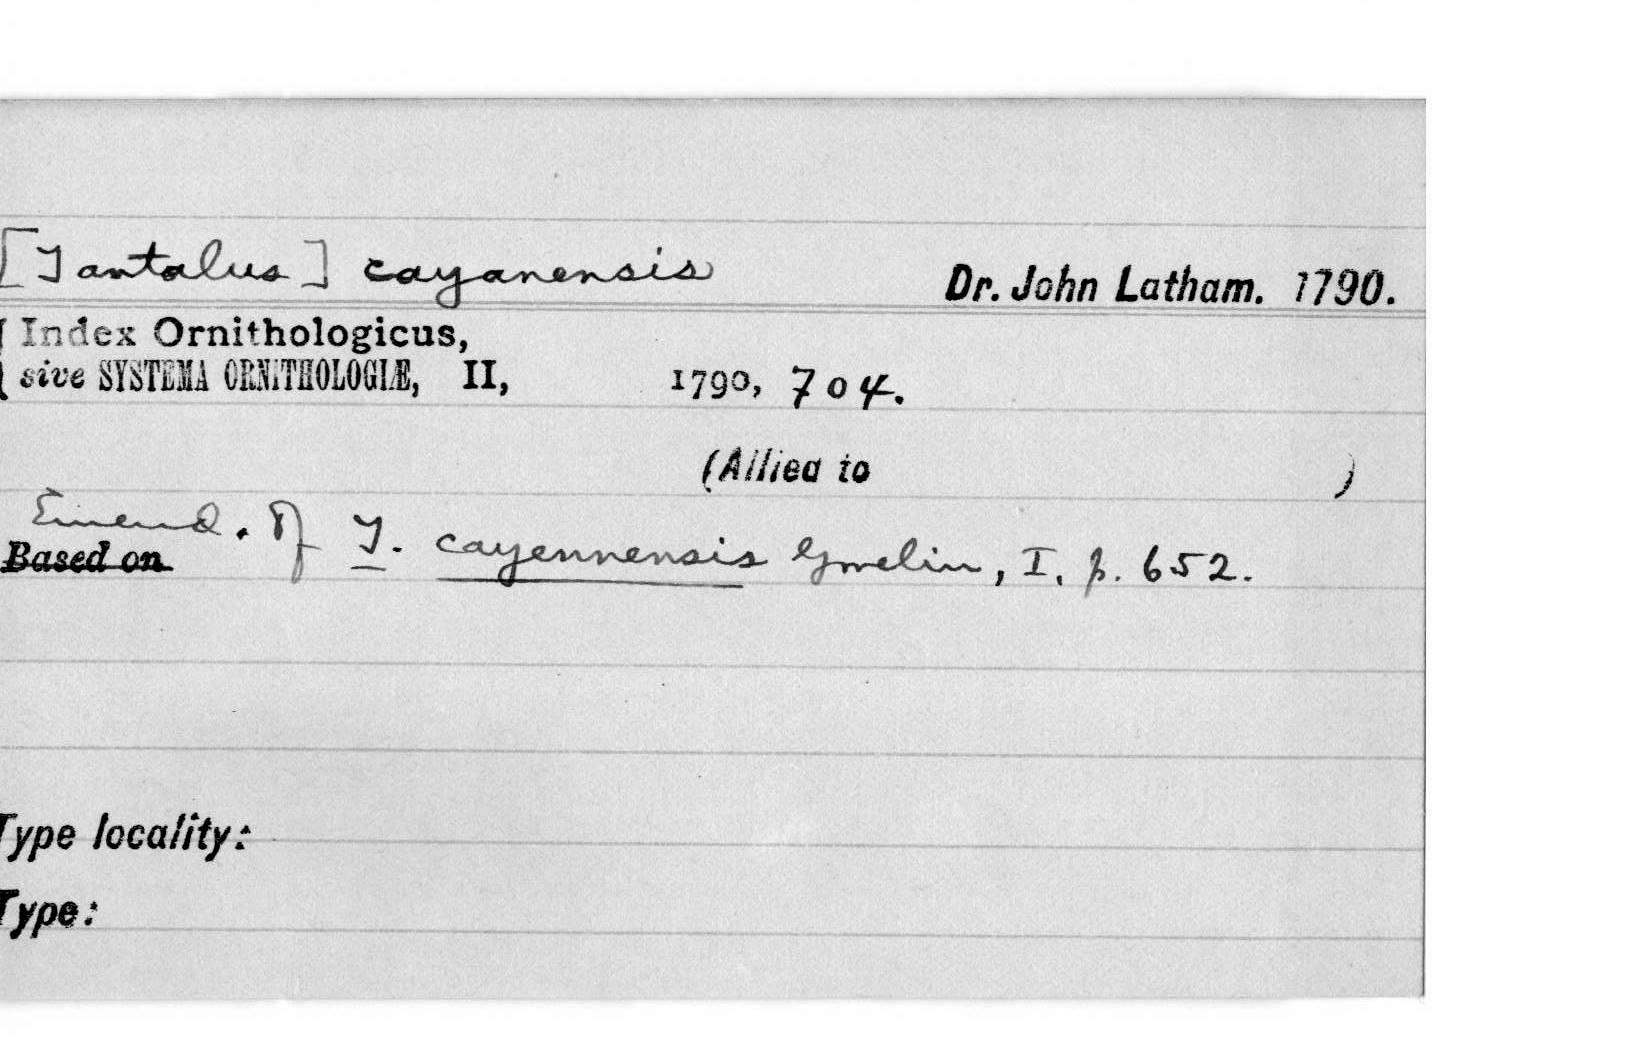 [Tantalus] cayanensis Dr. John Latham. 1790.
Index Ornithologicus,
sive SYSTEMA ORNITHOLOGIÆ, II, 1790, 704.
(Allied to )
Emend. of T. cayennensis Gmelin, I, p. 652.
Based on
Type locality:
Type: